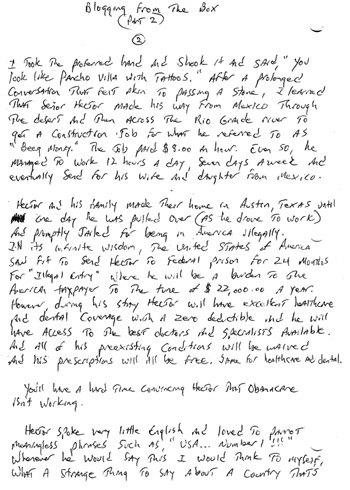 Blogging From The Box
(Part 2)
②
I Took the proferred hand And Shook it And SAID, "You
look like Pancho Villa with TATToos." After A prolonged
Conversation That Felt Akin To passing A Stone, I learned
That Señor Hector made his way From Mexico Through
The desert And Then Across The Rio Grande river To
get A Construction Job For what he referred To As
"Beeg Money." The Job paid $9.00 An hour. Even So, he
managed To work 12 hours A day, Seven days A week And
eventually Send For his wife And daughter From Mexico.
Hector And his family made Their home in Austin, Texas until
one day he was pulled over (As he drove To work)
And promptly Jailed For being in America illegally.
IN its infinite wisdom, The United States of America
Saw Fit To Send Hector To Federal prison For 24 Months
For "Illegal Entry" where he will be A burden To The
American TAXpayer To The tune of $22,000.00 A year.
However, during his stay Hector will have excellent healthcare
And dental Coverage with A zero deductible And he will
have Access To The best doctors And Specialists Available.
And All of his preexisting Conditions will be waived
And his prescriptions will All be Free. Same For healthcare And dental.
You'll have A hard Time Convincing Hector That Obamacare
isn't working.
Hector Spoke very little English And loved To parrot
meaningless phrases Such As, "USA... Number 1 !!!"
Whenever he would Say This I would Think To myself,
What A Strange Thing To Say About A Country That's